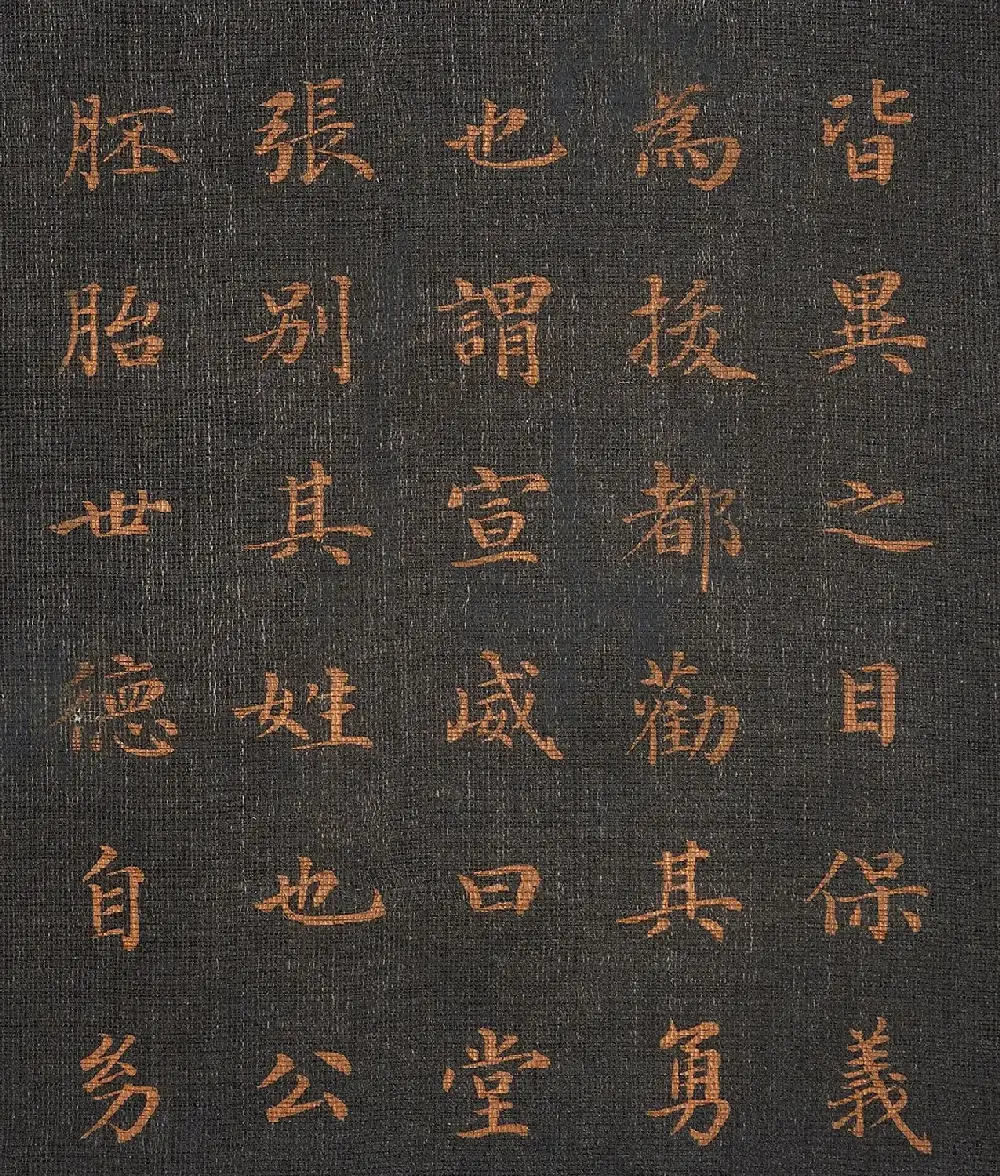 皆異之目保義
為援都勸其勇
也謂宣威曰堂
張別其姓也公
胚胎世德自幼